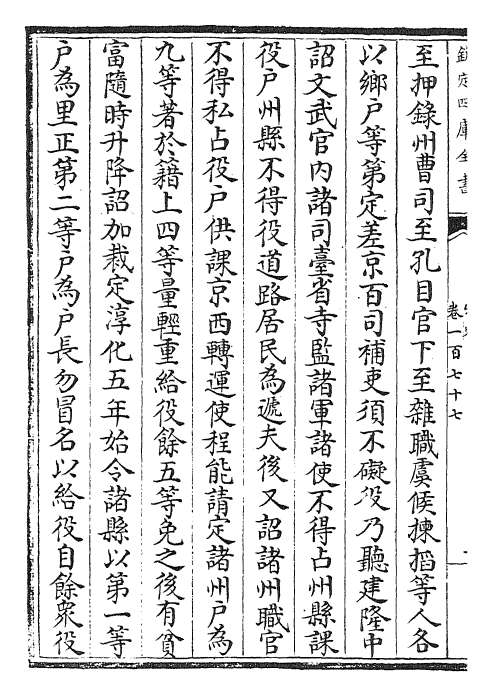 欽定四庫全書
卷一百七十七
至押錄州曹司至孔目官下至雜職虞候揀搯等人各
以鄉户等第定差京百司補吏須不礙役乃聽建隆中
詔文武官內諸司臺省寺監諸軍諸使不得占州縣課
役户州縣不得役道路居民為遞夫後又詔諸州職官
不得私占役户供課京西轉運使程能請定諸州户為
九等著於籍上四等量輕重給役餘五等免之後有貧
富隨時升降詔加裁定淳化五年始令諸縣以第一等
户為里正第二等户為户長勿冒名以給役自餘衆役